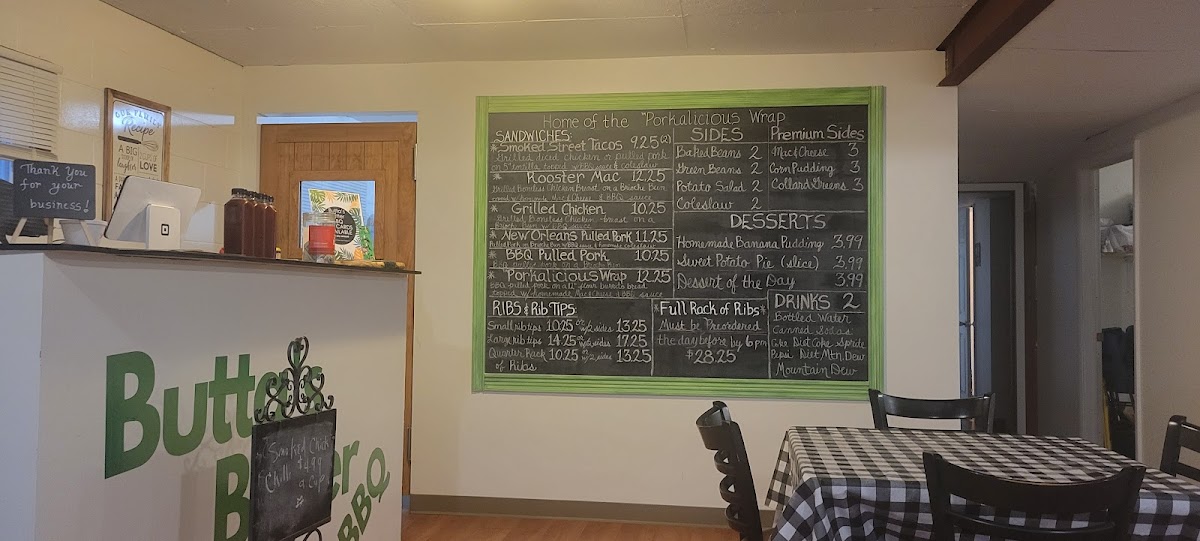 Thank You
for your
business!
Recipe
A BIG
LOVE
Butter's
B
er
BBQ
Smoked Chick
Chili $4.99
a cup
Home of the "Porkalicious Wrap
SANDWICHES:
* Smoked Street Tacos 9.25 (2)
Grilled diced chicken or pulled pork
* Rooster Mac 12.25
Grilled Boneless Chicken Breast on a Brioche Bun
& BBQ sauce
* Grilled Chicken 10.25
Grilled Boneless Chicken breast on a
Brioche Bun w/BBQ sauce
* New Orleans Pulled Pork 11.25
Pulled Pork on Brioche Bun w/BBQ sauce & homemade coleslaw
* BBQ Pulled Pork 10.25
* Porkalicious Wrap 12.25
BBQ pulled pork on a 12" flour burrito bread
topped w/homemade Mac & Cheese & BBQ sauce
SIDES
Baked Beans 2
Green Beans 2
Potato Salad 2
Coleslaw 2
Premium Sides
Mac & Cheese 3
Corn Pudding 3
Collard Greens 3
DESSERTS
Homemade Banana Pudding 3.99
Sweet Potato Pie (slice) 3.99
Dessert of the Day 3.99
RIBS & Rib TIPS
Small rib tips 10.25 or w/2 sides 13.25
Large rib tips 14.25 or w/2 sides 17.25
Quarter Rack 10.25 or w/2 sides 13.25
of Ribs
*Full Rack of Ribs*
Must be Preordered
the day before by 6pm
$28.25
DRINKS 2
Bottled Water
Canned Sodas
Coke Diet Coke Sprite
Pepsi Diet Mtn. Dew
Mountain Dew